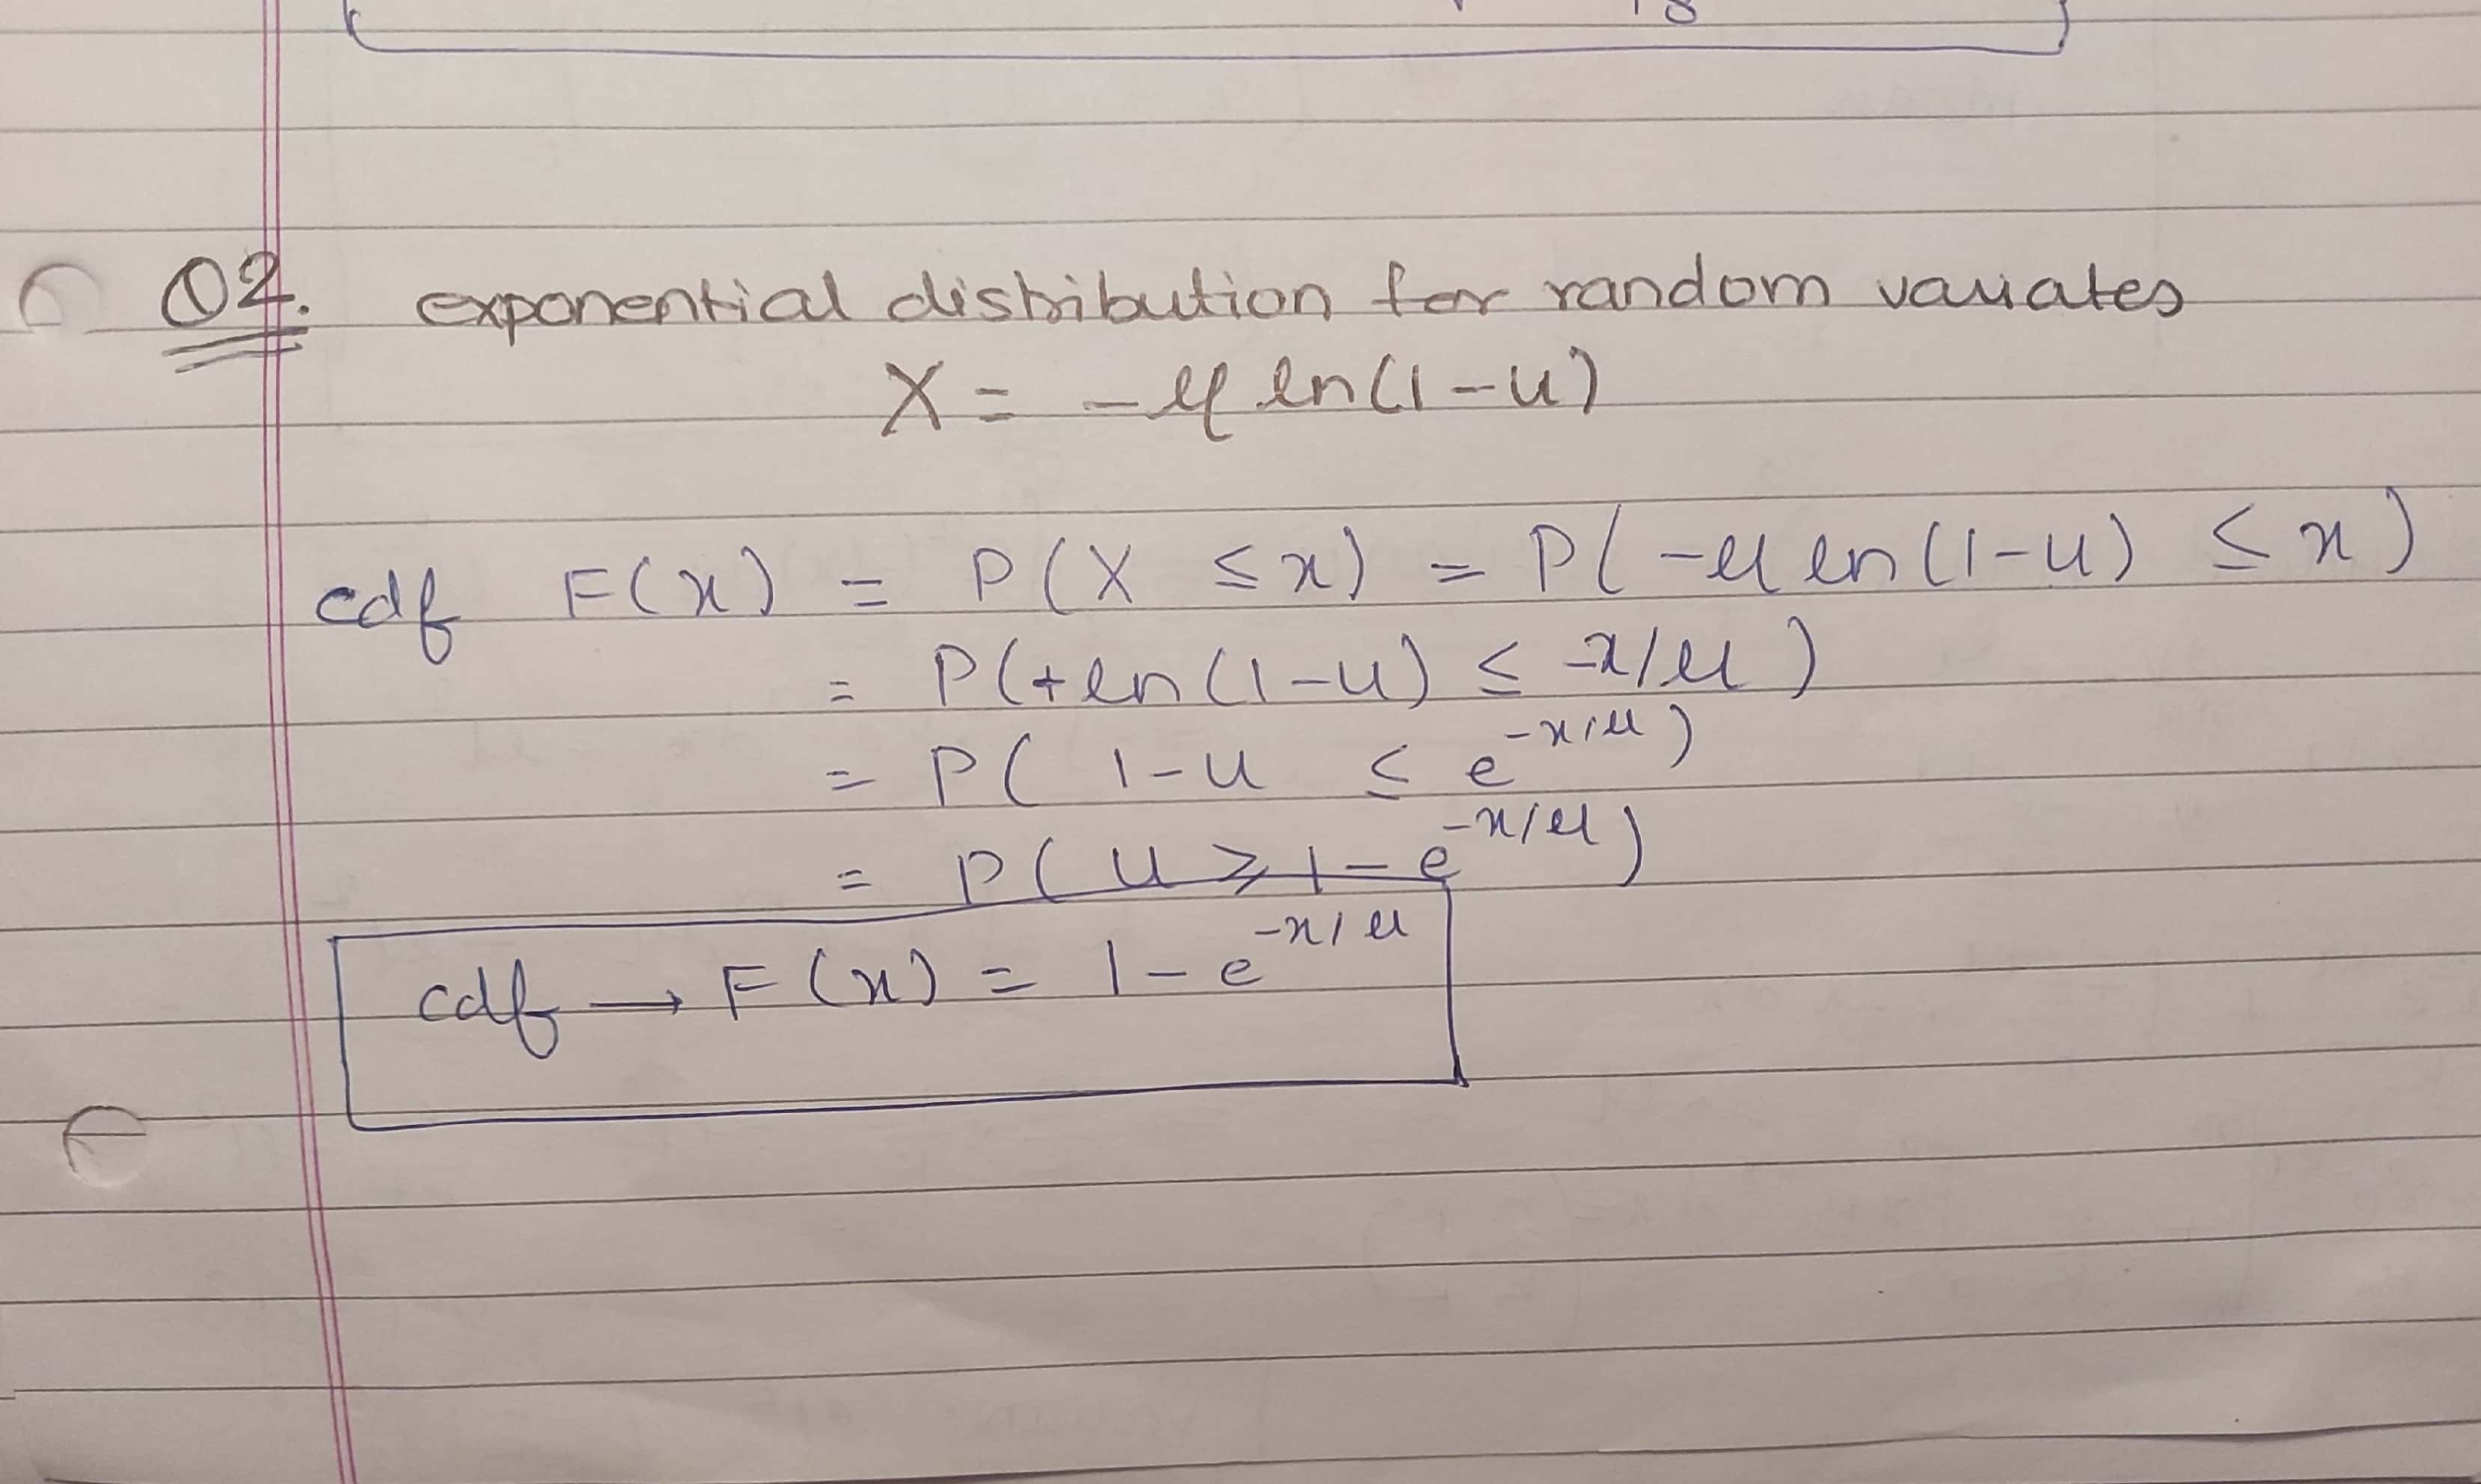 18
Q2. exponential distribution for random variates
X = -μ ln(1-u)
cdf F(x) = P(X ≤ x) = P(-μ ln(1-u) ≤ x)
= P(+ln(1-u) ≤ -x/μ)
= P( 1-u ≤ e^{-x/μ})
= P(u ≥ 1-e^{-x/μ})
cdf → F(x) = 1-e^{-x/μ}